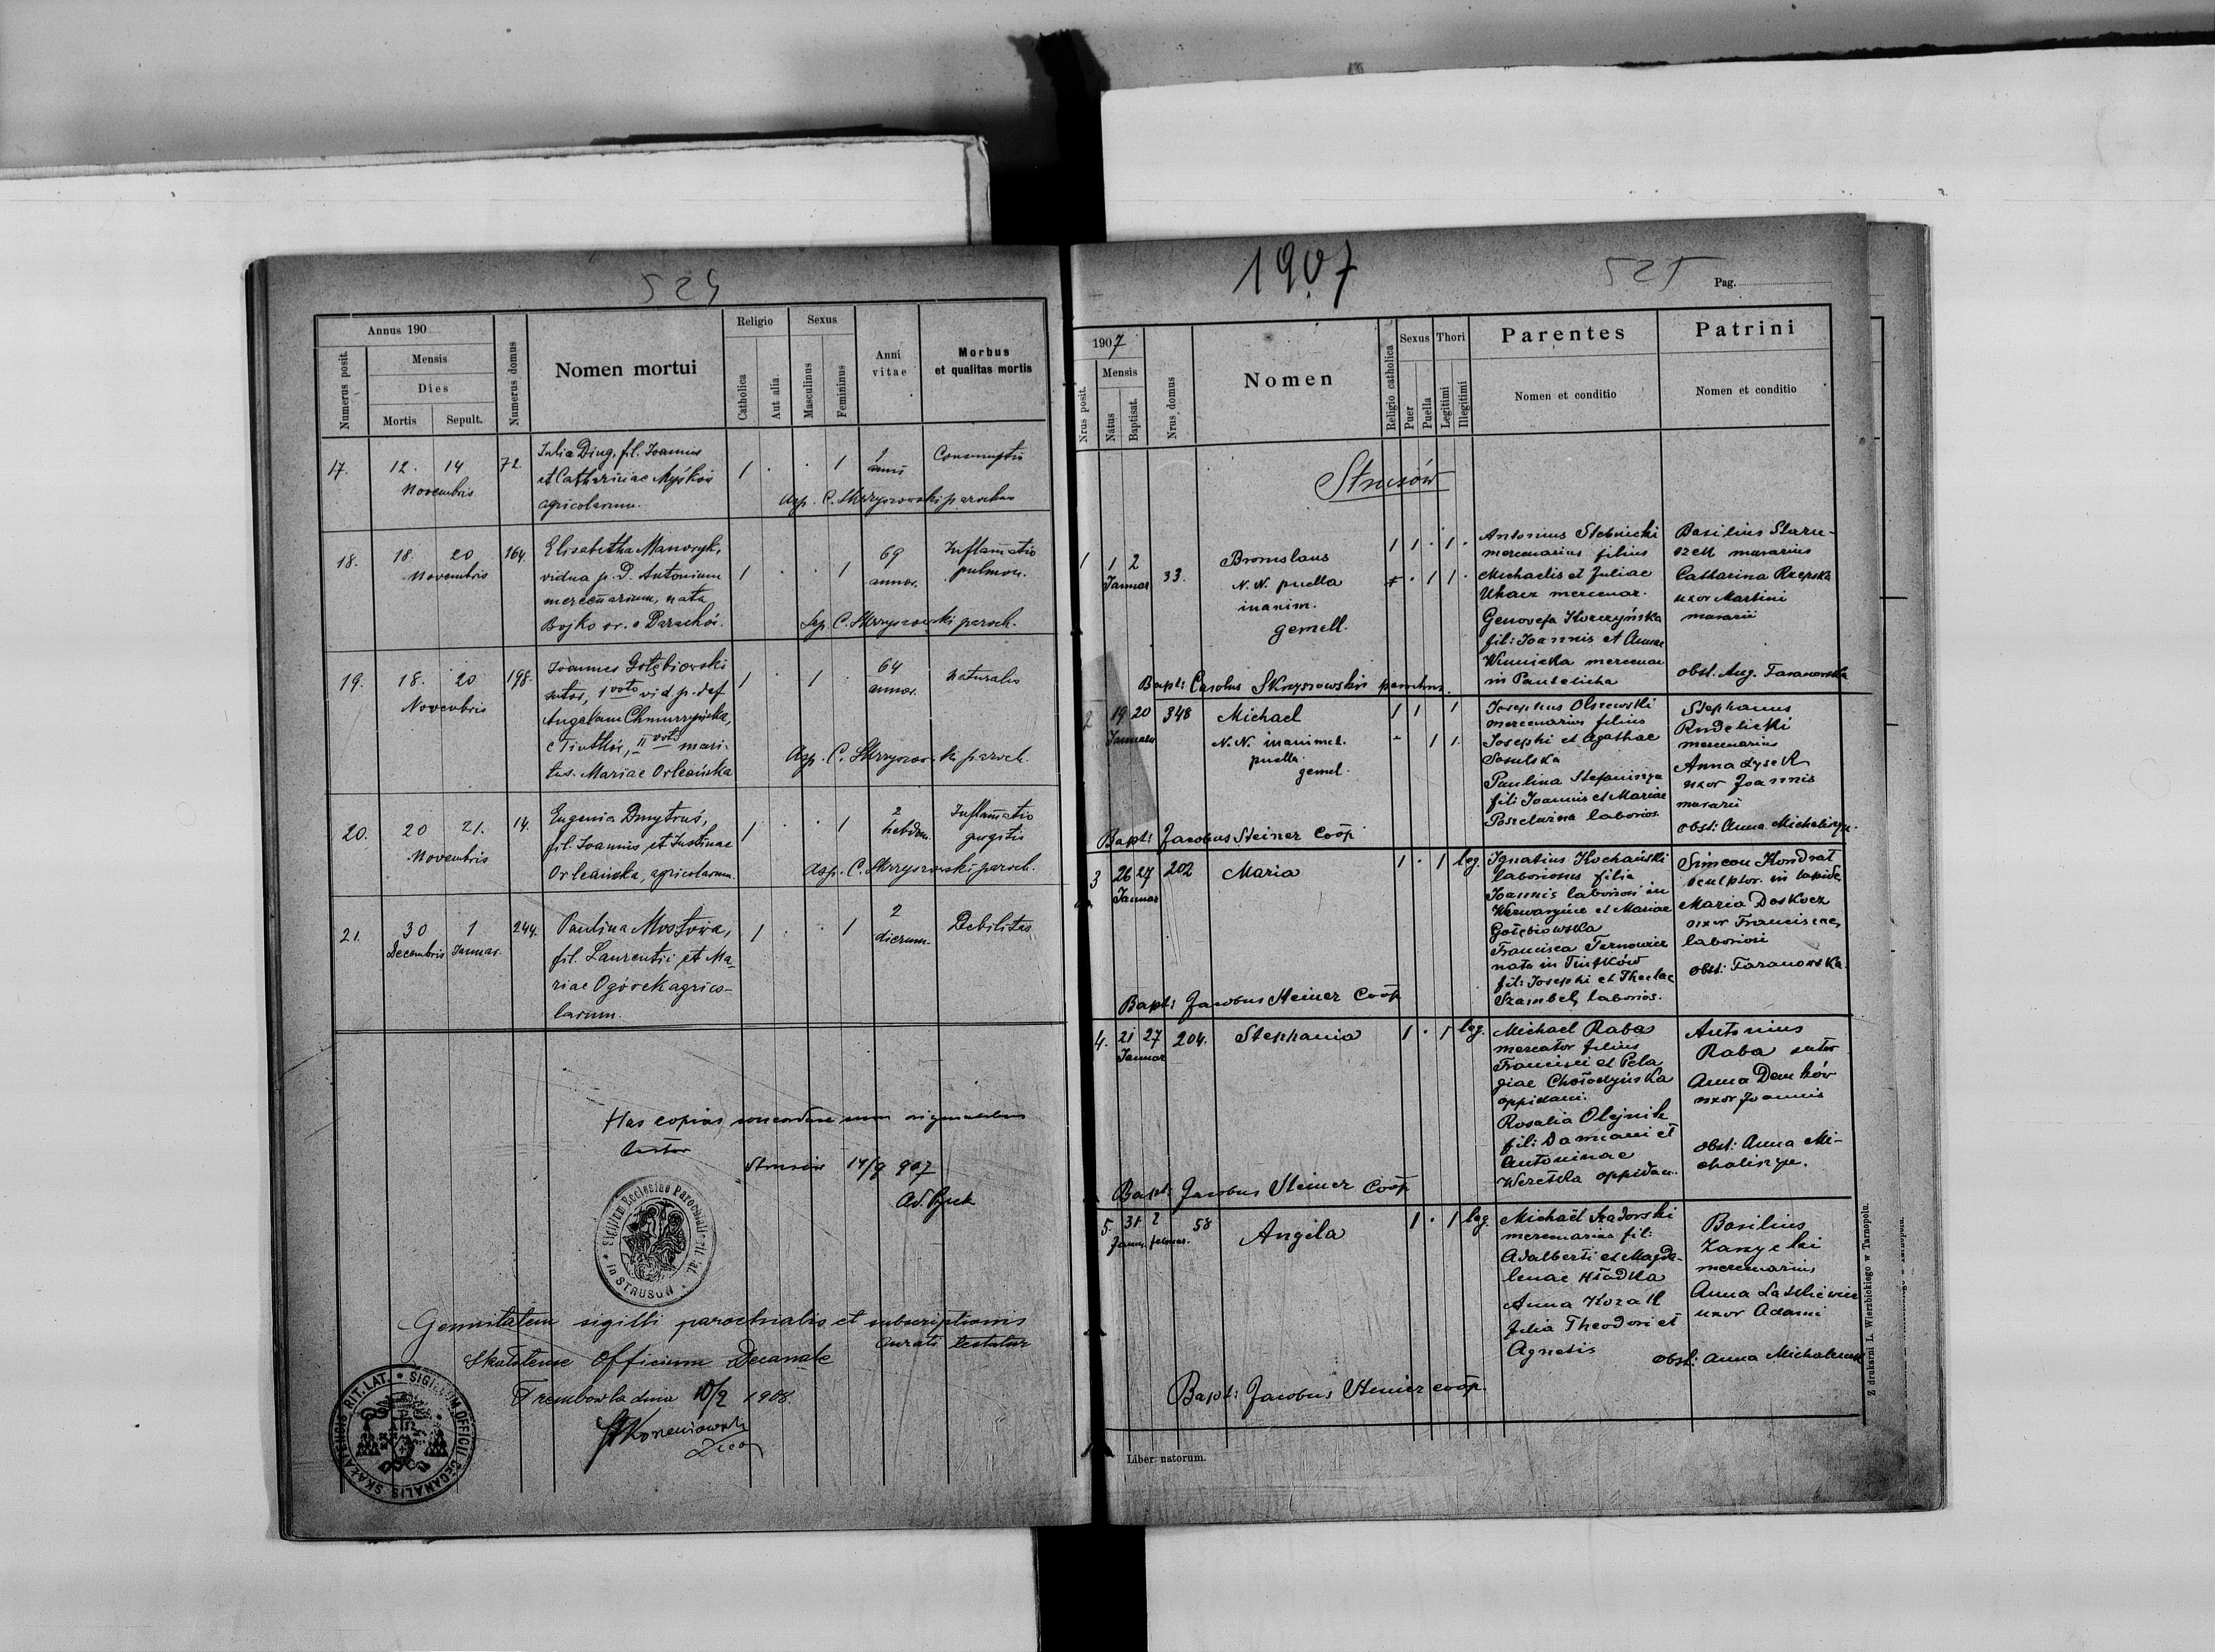 524
Annus 190
Numerus posit.
Mensis
Dies
Mortis
Sepult.
Numerus domus
Nomen mortui
Religio
Catholica
Aut alia
Sexus
Masculinus
Femininus
Anni vitae
Morbus
et qualitas mortis
17. 12. 14 Novembris 72.
Julia Ding, fil. Joannis
et Catharinae Myśków
agricolarum.
1 . . 1
1 anni
Consumptio
Asp. C. Skrzyszowski parochus
18. 18. 20 Novembris 164.
Elisabetha Manoryk,
vidua p. D. Antonium
mercenarium, nata
Bojko or. e Darachów.
1 . . 1
69 annor.
Inflamatio
pulmon.
Sep. C. Skrzyszowski paroch.
19. 18. 20 Novembris 198.
Joannes Gołębiowski
sutor, 1 voto vid. p. def
Angelam Chmurzyńska,
e Tiutków, II voto mari-
tus. Mariae Orleańska
1 . 1 .
64 annor.
Naturalis
Asp. C. Skrzyszowski paroch.
20. 20 21. Novembris 14.
Eugenia Dmytruś,
fil. Joannis et Justinae
Orleańska, agricolarum.
1 . . 1
2 hebdom.
Inflamatio
gurgitis
Asp. C. Skrzyszowski paroch.
21. 30 Decembris 1 Januar. 244.
Paulina Mostowa,
fil. Laurentii et Ma-
riae Ogórek agrico-
larum.
1 . . 1
2 dierum.
Debilitas
Has copias concordare cum originalibus
testor
Strusów 14/9 907
Sigillum Ecclesiae Parochialis rit. lat.
in STRUSÓW
Genuitatem sigilli parochialis et subscriptionis
curati testatur
Skałatense Officium Decanale
Trembowla dnia 10/2 1908.
SIGILLUM OFFICII DECANALIS SKAŁATENSIS RIT. LAT.
1907
525
Pag.
1907
Nrus posit.
Mensis
Natus
Baptisat.
Nrus domus
Nomen
Religio catholica
Sexus
Puer
Puella
Thori
Legitimi
Illegitimi
Parentes
Nomen et conditio
Patrini
Nomen et conditio
Strusów
1 1 2 Januar 33.
Bronislaus
N. N. puella
inanim.
gemell.
1 1 . 1 .
Antonius Stebnicki
mercenarius filius
Michaelis et Juliae
Ukacz mercenar.
Genovefa Korczyńska
fil: Joannis et Annae
Winnicka mercenar
in Pantelicha
Basilius Staru-
szek murarius
Catharina Rzepska
uxor Martini
murarii
obst. Ang. Taranowska
Bapt: Carolus Skrzyszowski parochus.
2 19 20 Januar 348
Michael
N. N. inanimat.
puella
gemel.
Josephus Olszewski
mercenarius filius
Josephi et Agathae
Sosulska
Paulina Stefaniszyn
fil: Joannis et Mariae
Poszelużna laborios.
Stephanus
Rudelicki
mercenarius
Anna Łysek
uxor Joannis
murarii
obst: Anna Michaliszyn.
Bapt: Jacobus Steiner Coop.
3 26 27 Januar 202
Maria
1 . 1 leg.
Ignatius Kochański
laboriosus filia
Joannis laboriosi in
Warwaryńce et Mariae
Gołębiowska
Francisca Tarnowicz
nata in Tiutków
fil: Josephi et Theclae
Szambel, laborios.
Simeon Kondrat
sculptor. in lapide
Maria Doskocz
uxor Franciscae,
laboriosi
obst: Taranowska
Bapt: Jacobus Steiner Coop
4. 21 27 Januar 204.
Stephania
1 . 1 leg.
Michael Raba
mercator filius
Francisci et Pela
giae Chołodyńska
oppidani.
Rosalia Olejnik
fil: Damiani et
Antoninae
Weretska oppidan.
Antonius
Raba sutor
Anna Demków
uxor Joannis
obst: Anna Mi-
chaliszyn.
Bapt: Jacobus Steiner Coop
5. 31 Janu. 2 februar. 58
Angela
1 . 1 leg.
Michaël Szadorski
mercenarius fil:
Adalberti et Magda-
lenae Hładka
Anna Kozak
filia Theodori et
Agnetis
Basilius
Zanycki
mercenarius
Anna Laskiewicz
uxor Adami
obst: Anna Michaliszyn
Bapt: Jacobus Steiner coop.
Liber natorum.
Z drukarni L. Wierzbickiego w Tarnopolu.